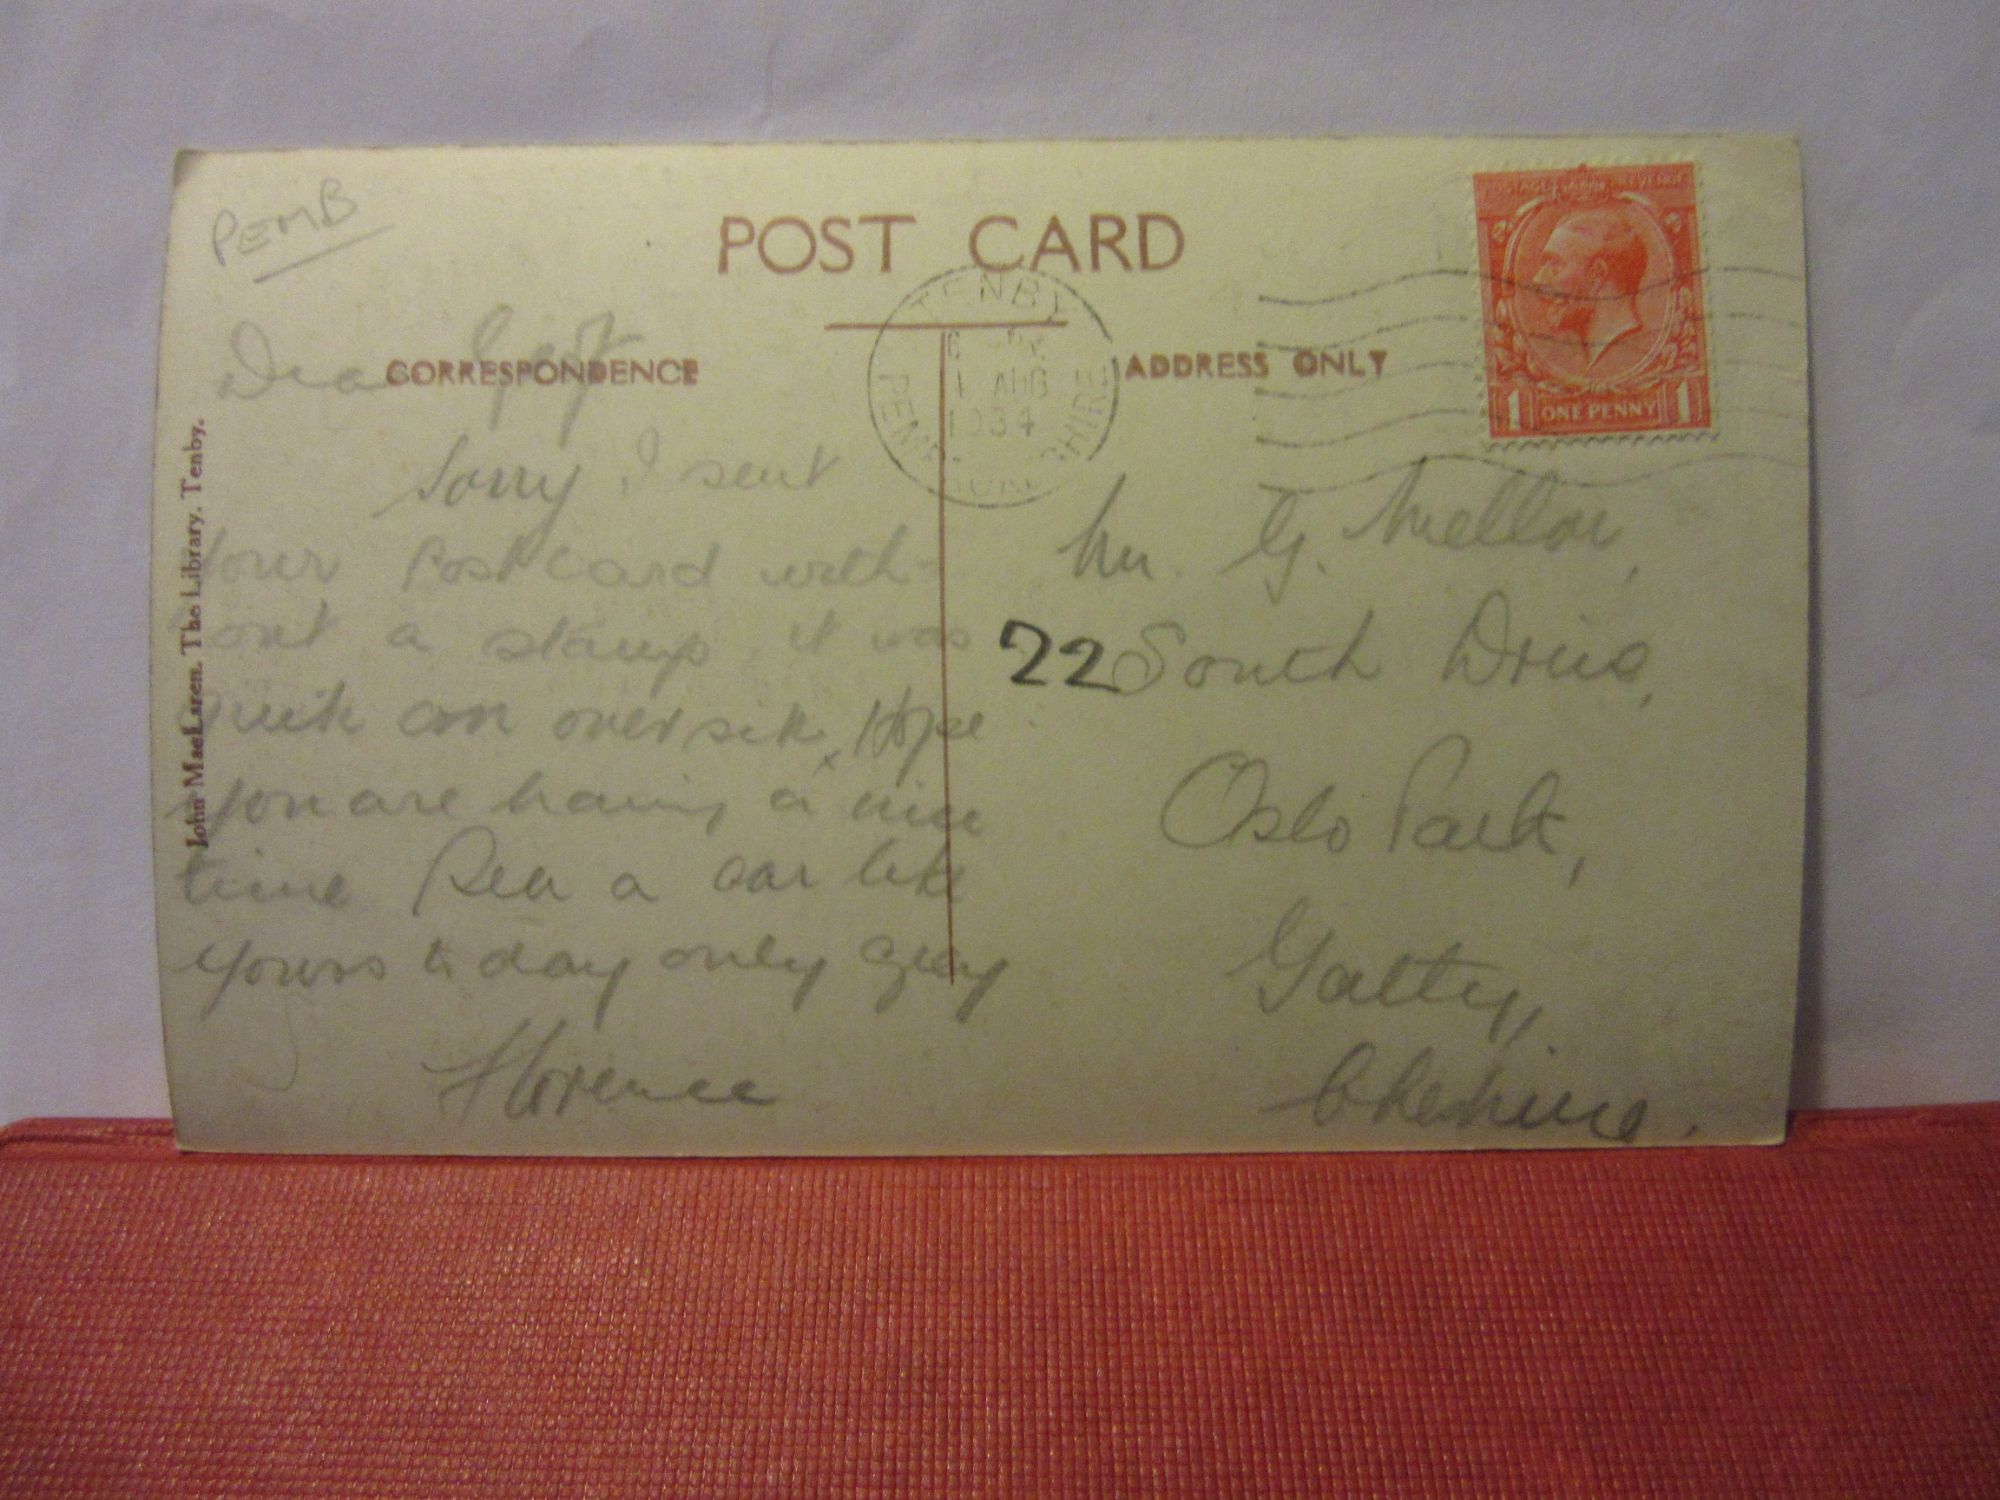 PEMB
POST CARD
TENBY
6
1 AUG
1934
PEMBROKESHIRE
POSTAGE REVENUE
1 ONE PENNY 1
CORRESPONDENCE
ADDRESS ONLY
John MacLaren. The Library. Tenby.
Dear Geof
Sorry I sent
your Post Card with-
out a stamp, it was
quite an over site, Hope
you are having a nice
time Seen a car like
yours to day only grey
Florence
Mr. G. Mellor,
22 South Drive,
Oslo Park,
Gatley,
Cheshire.